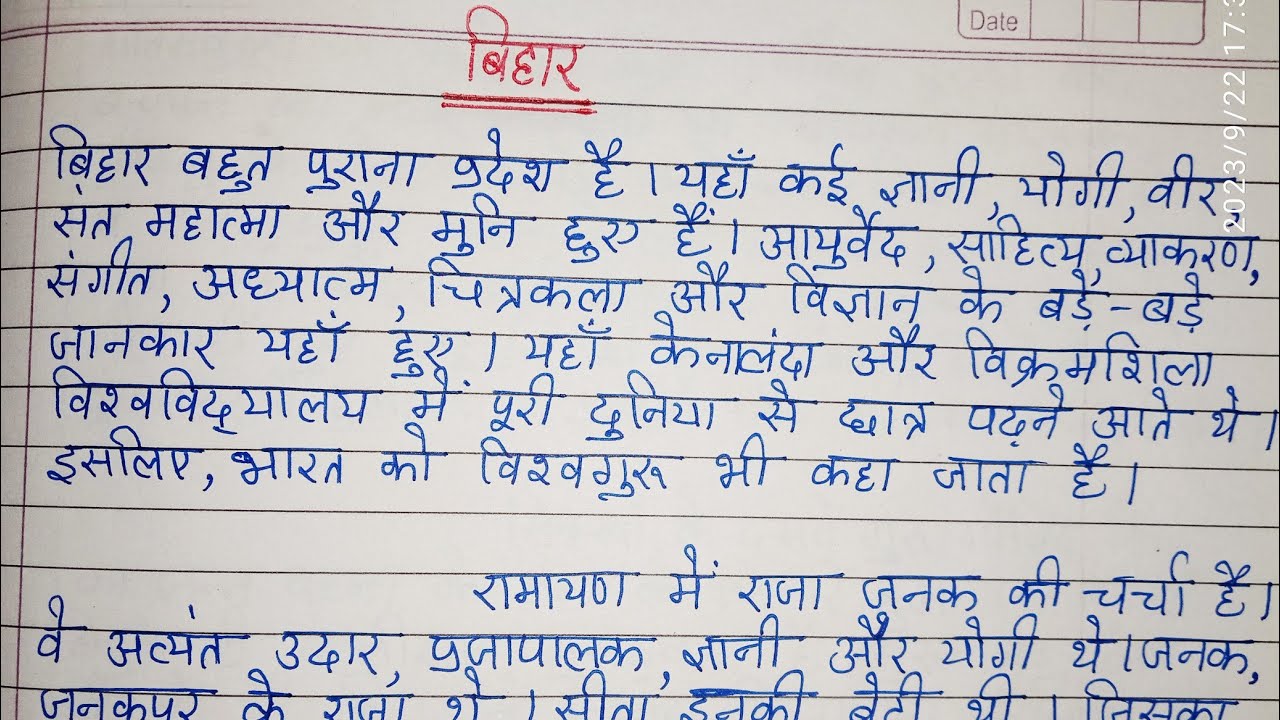 Date
2023/9/22 17:3
बिहार
बिहार बहुत पुराना प्रदेश है। यहाँ कई ज्ञानी, योगी, वीर,
संत, महात्मा और मुनि हुए हैं। आयुर्वेद, साहित्य, व्याकरण,
संगीत, अध्यात्म, चित्रकला और विज्ञान के बड़े-बड़े
जानकार यहाँ हुए। यहाँ केनालंदा और विक्रमशिला
विश्वविद्यालय में पूरी दुनिया से छात्र पढ़ने आते थे।
इसलिए, भारत को विश्वगुरू भी कहा जाता है।
रामायण में राजा जनक की चर्चा है।
वे अत्यंत उदार, प्रजापालक, ज्ञानी और योगी थे। जनक,
जनकपुर के राजा थे। सीता इनकी बेटी थी। जिसका